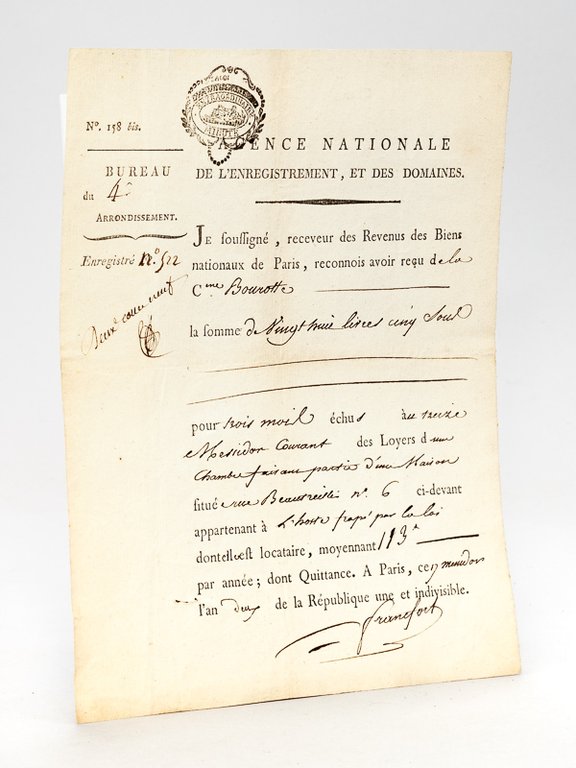 N°. 158 bis.
BUREAU
du 4e
ARRONDISSEMENT.
Enregistré N.° 522
AGENCE NATIONALE
DE L'ENREGISTREMENT, ET DES DOMAINES.
JE soussigné, receveur des Revenus des Biens
nationaux de Paris, reconnois avoir reçu de la
C.ne Bourotte
la somme de Vingt huit livres cinq Sous
pour trois mois échus au treize
Messidor Courant des Loyers d'une
Chambre faisant partie d'une Maison
située rue n°. 6 ci-devant
appartenant à L'hoste frapé par la loi
dont elle est locataire, moyennant 113
par année; dont Quittance. A Paris, ce messidor
l'an deux de la République une et indivisible.
Francfort